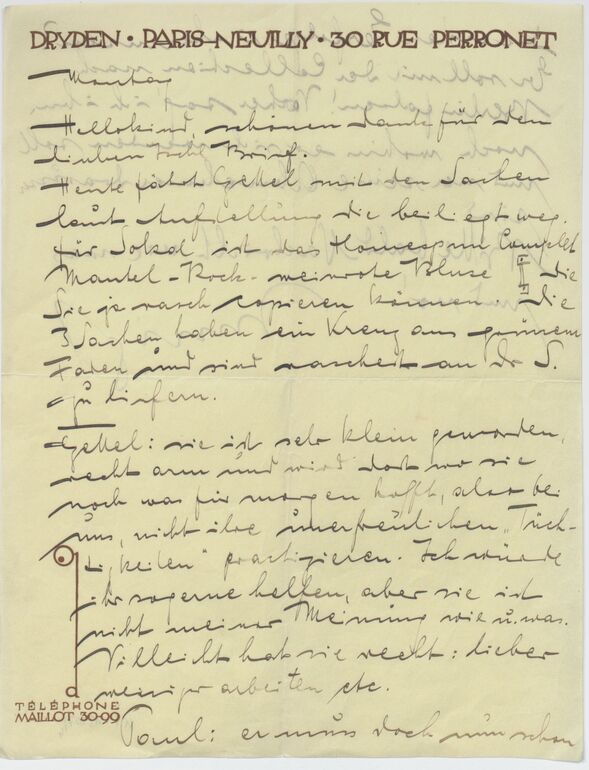 DRYDEN · PARIS-NEUILLY · 30 RUE PERRONET
Montag
Hellokind, schönen Dank für den
lieben Brief.
Heute fährt Gettel mit den Sachen
laut Aufstellung die beiliegt weg.
für Sokal ist das Homespun Complet
Mantel-Rock-weinrote Bluse die
Sie ja rasch copieren können. Die
3 Sachen haben ein Kreuz aus grünem
Faden und sind rascheft an Dr S.
zu liefern.
Gettel: sie ist sehr klein geworden,
recht arm und wird dort wo sie
noch was für morgen hofft, also bei
uns, nicht ihre unerfreulichen "Tüch-
tigkeiten" practizieren. Ich würde
ihr so gerne helfen, aber sie ist
nicht meiner Meinung wie u. was.
Villeicht hat sie recht: lieber
weniger arbeiten etc.
TÉLÉPHONE
MAILLOT 30-99
Paul: er muss doch nun schon